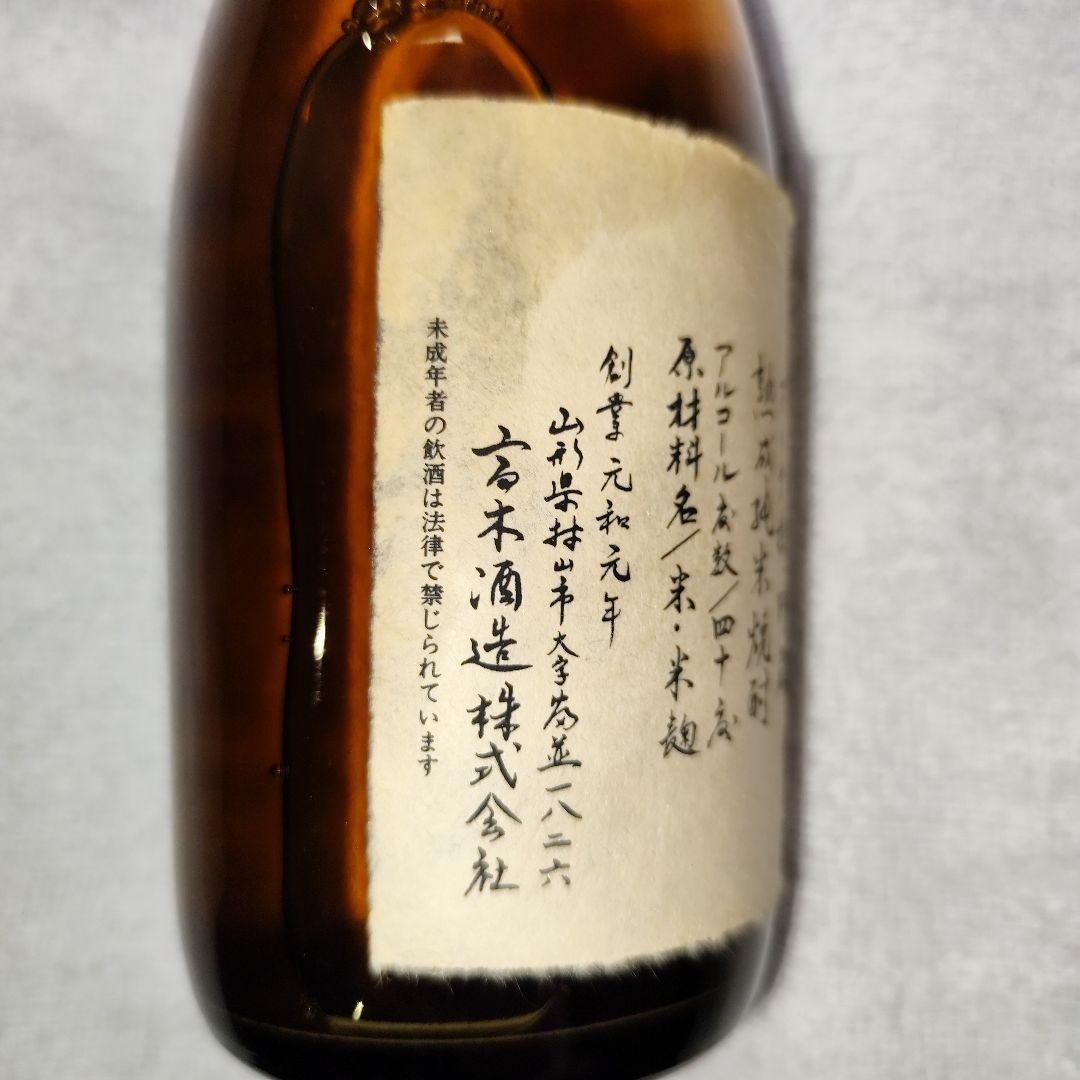 熟成純米焼酎
アルコール度数/四十度
原材料名/米・米麹
創業元和元年
山形県村山市大字富並一八二六
高木酒造株式会社
未成年者の飲酒は法律で禁じられています